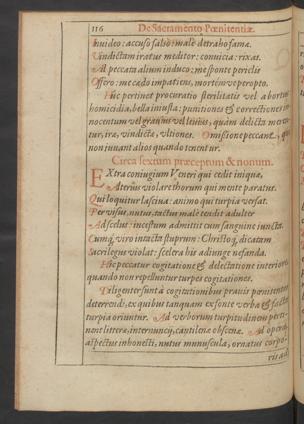 116 De Sacramento Pœnitentiæ.
Inuideo: accuso falso: male detraho famæ.
Vindictam iratus meditor: conuicia: rixas.
Ad peccata alium induco: me sponte periclis
Offero: me cædo impatiens, mortemve peropto.
Huc pertinet procuratio sterilitatis vel abortus
homicidia, bella iniusta: punitiones & correctiones in
nocentum vel grauius vel leuius, quàm delicta meren
tur, ira, vindicta, vltiones. Omissione peccant, qui
non iuuant alios quando tenentur.
Circa sextum præceptum & nonum.
EXtra coniugium Veneri qui cedit iniquæ,
Alterius violare thorum qui mente paratus.
Qui loquitur lasciua: animo qui turpia versat.
Per visus, nutus, tactus male tendit adulter
Ad scelus: incestum admittit cum sanguine iuncta.
Cumq; viro intacta stuprum: Christoq; dicatam
Sacrilegus violat: scelera his adiunge nefanda.
Hic peccatur cogitatione & delectatione interiore,
quando non repelluntur turpes cogitationes.
Diligenter sunt à cogitationibus prauis pœnitentes
deterrendi, ex quibus tanquam ex fonte verba & facta
turpia oriuntur. Ad verborum turpitudinem perti-
nent litteræ, internuncij, cantilenæ obscenæ. Ad opera,
aspectus inhonesti, nutus, munuscula, ornatus corpo-
ris ad